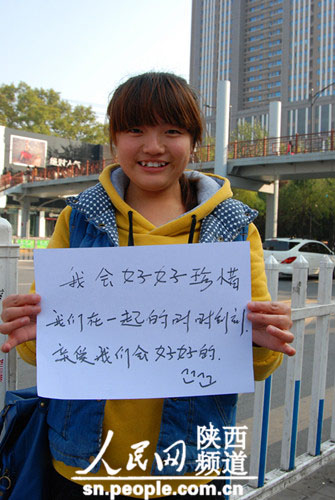 我会好好珍惜
我们在一起的时时刻刻.
亲爱我们会好好的.
人民网 陕西频道
sn.people.com.cn